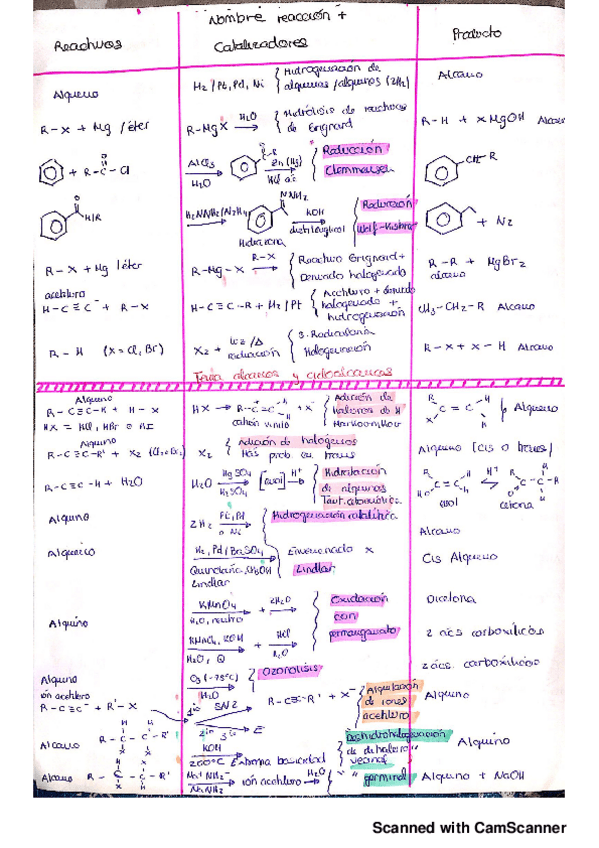 Reactivos
Nombre reacción +
Catalizadores
Producto
Alqueno
H2 / Pt, Pd, Ni
Hidrogenación de
alquenos / alquinos (2H2)
Alcano
R-X + Mg / éter
R-MgX
H2O
Hidrólisis de reactivos
de Grignard
R-H + XMgOH Alcano
+ R-C-Cl
O
AlCl3
H2O
Zn (Hg)
HCl ac
Reducción
Clemmensen
H/R
H2NNH2/N2H4
NNH2
Hidrazona
KOH
Reducción
Wolf-Kishner
+ N2
R-X + Mg / éter
R-Mg-X
R-X
Reactivo Grignard +
Derivado halogenado
R-R + MgBr2
alcano
acetiluro
H-C≡C⁻ + R-X
H-C≡C-R + H2 / Pt
Acetiluro + derivado
halogenado +
hidrogenación
CH3-CH2-R Alcano
R-H (X = Cl, Br)
X2 +
luz / Δ
radiación
S. Radicalaria
Halogenación
R-X + X-H Alcano
Tema alcanos y cicloalcanos
Alquino
R-C≡C-R + H-X
HX = HCl, HBr o HI
HX
catión vinilo
Adición de
haluros de H
Markovnikov
Alqueno
Alquino
R-C≡C-R' + X2 (Cl2 o Br2)
X2
Adición de halógenos
Más prob. en trans
Alqueno [cis o trans]
R-C≡C-H + H2O
H2O
HgSO4
H2SO4
[enol]
H+
Hidratación
de alquinos
Taut.
enol
H+
cetona
Alquino
2 H2
Pt, Pd
o Ni
Hidrogenación catalítica
Alcano
Alquino
H2, Pd / BaSO4
Quinoleína, CH3OH
Lindlar
Envenenado
Lindlar
Cis Alqueno
Alquino
KMnO4
H2O, neutro
+
2H2O
Oxidación
con
permanganato
Dicetona
KMnO4, KOH
H2O, Q
+
HCl
H2O
2 acs carboxílicos
Alquino
O3 (-78°C)
H2O
Ozonolisis
2 ács. carboxílicos
ión acetiluro
R-C≡C⁻ + R'-X
SN2
R-C≡C-R' + X⁻
Alquilación
de iones
acetiluro
Alquino
E
Alcano
KOH
200°C Extrema basicidad
Deshidrohalogenación
de dihaluro
vecinal
Alquino
Alcano
Na+NH2⁻
ión acetiluro
H2O
" " germinal
Alquino + NaOH
Scanned with CamScanner